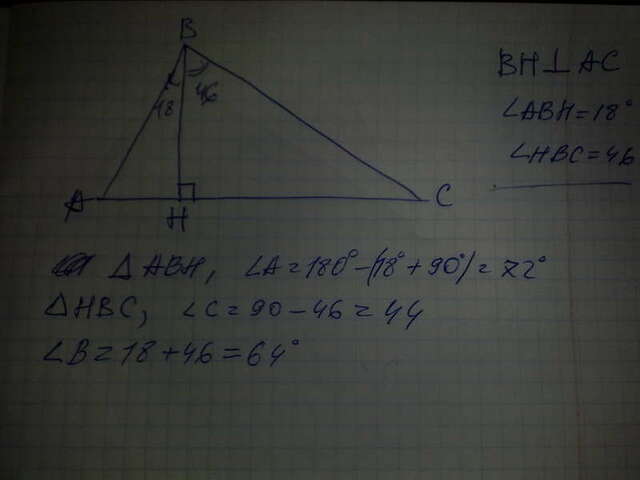 B
18 46
A H C
BH⊥AC
∠ABH=18°
∠HBC=46
△ABH, ∠A=180°-(18°+90°)=72°
△HBC, ∠C=90-46=44
∠B=18+46=64°